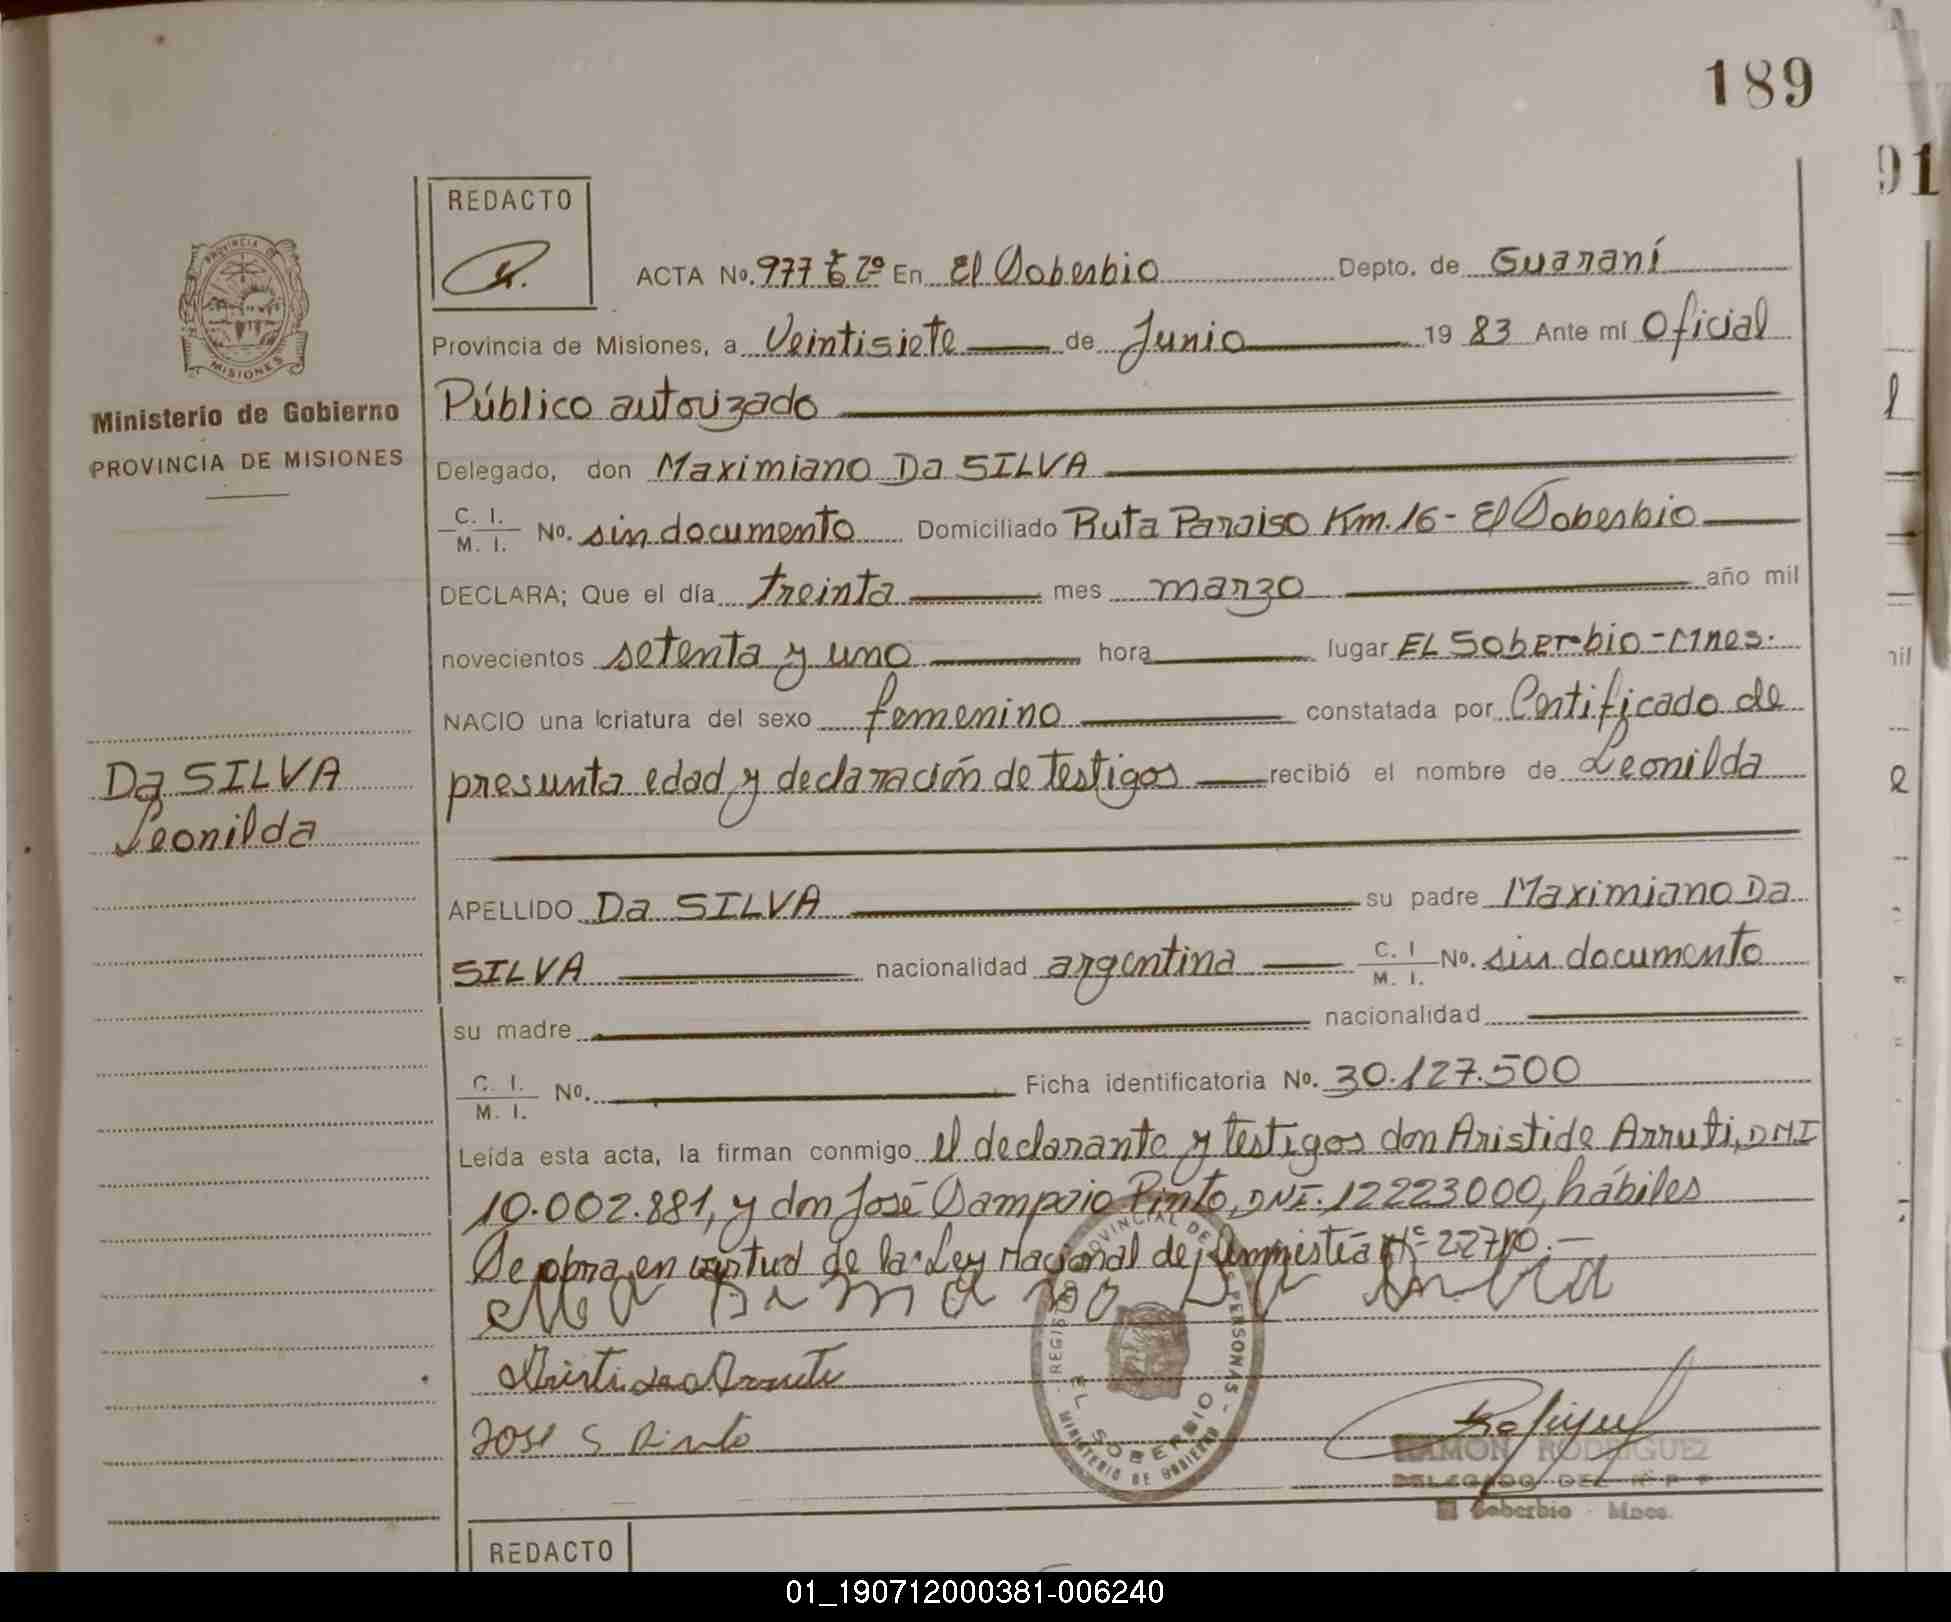 189
91
REDACTO
ACTA No. 977 Tº 2º En El Soberbio Depto. de Guaraní
Provincia de Misiones, a Veintisiete de Junio 19 83 Ante mí Oficial
Público autorizado
Delegado, don Maximiano Da SILVA
C. I. M. I. No. sin documento Domiciliado Ruta Paraiso Km. 16 - El Soberbio
DECLARA; Que el día treinta mes marzo año mil
novecientos setenta y uno hora lugar EL Soberbio - Mnes.
NACIO una criatura del sexo femenino constatada por Certificado de
presunta edad y declaración de testigos recibió el nombre de Leonilda
APELLIDO Da SILVA su padre Maximiano Da
SILVA nacionalidad argentina C. I M. I. No. sin documento
su madre nacionalidad
C. I. M. I. No. Ficha identificatoria No. 30.127.500
Leída esta acta, la firman conmigo el declarante y testigos don Aristide Arruti, DNI
10.002.881, y don José Sampaio Pinto, DNI. 12223000, hábiles
Se obra en virtud de la Ley Nacional de Amnistía Nº 22710.-
José S Pinto
RAMON RODRIGUEZ
DELEGADO DEL R P P
El Soberbio - Mnes.
REGISTRO PROVINCIAL DE LAS PERSONAS
EL SOBERBIO
MINISTERIO DE GOBIERNO
PROVINCIA DE
MISIONES
Ministerio de Gobierno
PROVINCIA DE MISIONES
Da SILVA
Leonilda
REDACTO
01_190712000381-006240